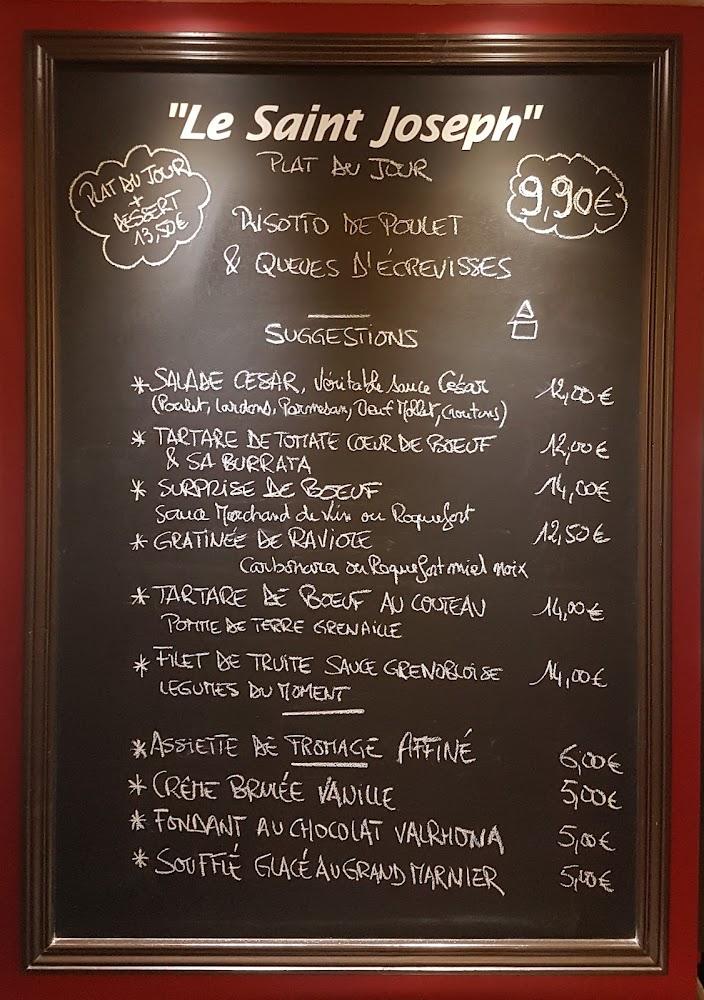 "Le Saint Joseph"
PLAT DU JOUR
PLAT DU JOUR
+
DESSERT
13,50€
9,90€
RISOTTO DE POULET
& QUEUES D'ÉCREVISSES
SUGGESTIONS
* SALADE CESAR, Véritable sauce César 12,00€
(Poulet, lardons, Parmesan, Oeuf Mollet, Croutons)
* TARTARE DE TOMATE COEUR DE BOEUF 12,00€
& SA BURRATA
* SURPRISE DE BOEUF 14,00€
Sauce Marchand de Vin ou Roquefort
* GRATINÉE DE RAVIOLE 12,50€
Carbonara ou Roquefort miel noix
* TARTARE DE BOEUF AU COUTEAU 14,00€
POMME DE TERRE GRENAILLE
* FILET DE TRUITE SAUCE GRENOBLOISE 14,00€
LEGUMES DU MOMENT
* ASSIETTE DE FROMAGE AFFINÉ 6,00€
* CRÊME BRULÉE VANILLE 5,00€
* FONDANT AU CHOCOLAT VALRHONA 5,00€
* SOUFFLÉ GLACÉ AU GRAND MARNIER 5,00€